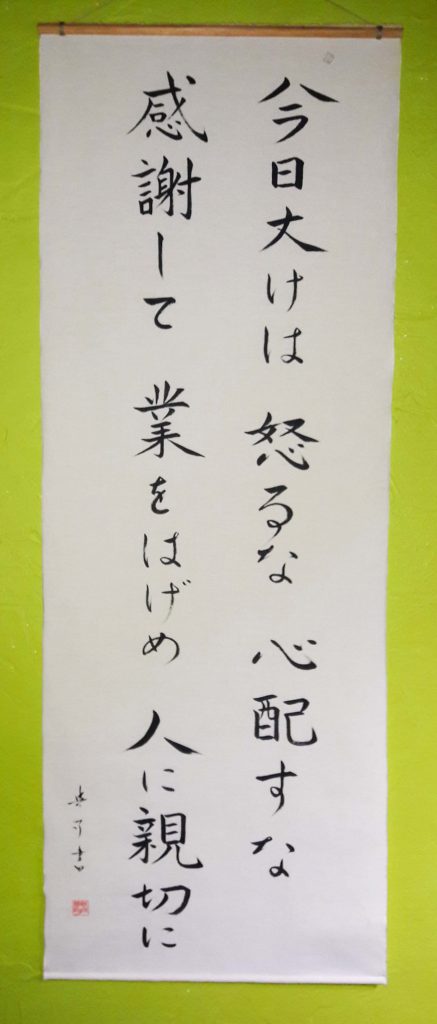 今日丈けは 怒るな 心配すな
感謝して 業をはげめ 人に親切に